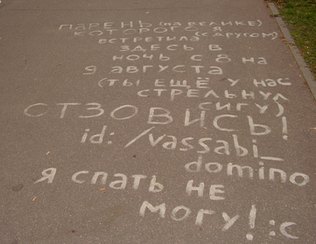 ПАРЕНЬ (НА ВЕЛИКЕ)
КОТОРОГО Я
ВСТРЕТИЛА (С ДРУГОМ)
ЗДЕСЬ В
НОЧЬ С 8 НА
9 АВГУСТА
(ТЫ ЕЩЁ У НАС
СТРЕЛЬНУЛ
СИГУ)
ОТЗОВИСЬ!
id: /vassabi_
domino
Я СПАТЬ НЕ
МОГУ! :с